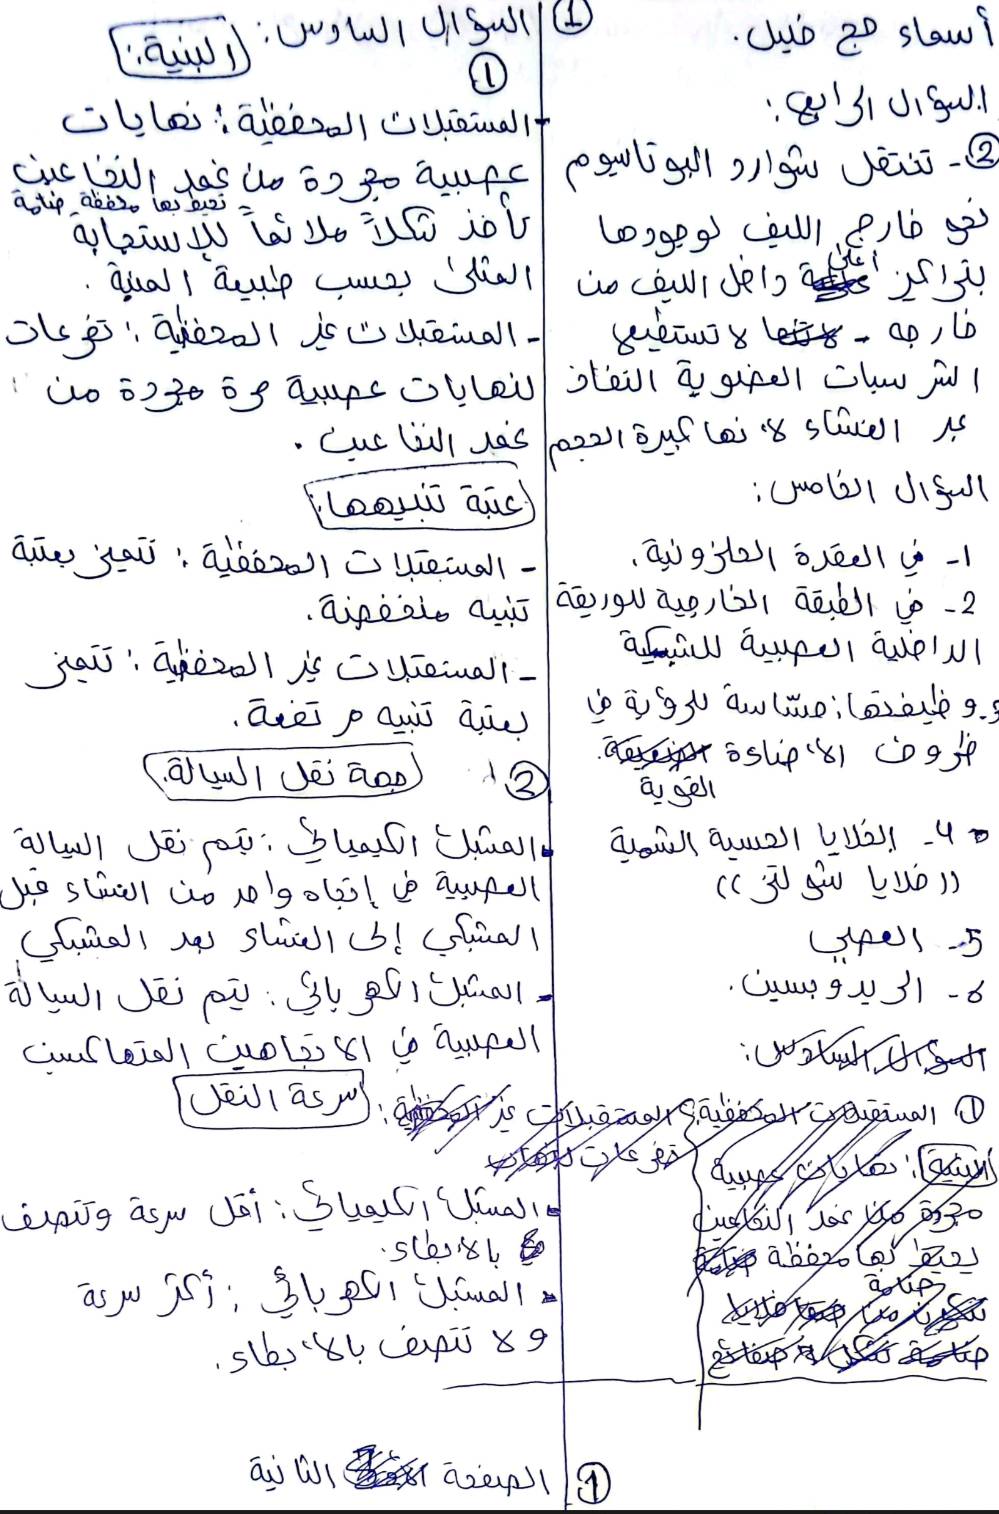 أسماء حج خليل.
السؤال الرابع:
② - تنتقل شوارد البوتاسيوم
نحو خارج الليف لوجودها
بتراكيز أعلى داخل الليف من
خارجه - لا تستطيع
الشرسبات العضوية النفاذ
عبر الغشاء لأنها كبيرة الحجم
السؤال الخامس:
1- في العقدة الحلزونية.
2- في الطبقة الخارجية للوريقة
الداخلية العصبية للشبكية
وظيفتها: حساسة للرؤية في
ظروف الإضاءة
القوية
4- الخلايا الحسية الشمية
(( خلايا شولتز ))
5- العصبي
6- الريدوبسين.
السؤال السادس:
① المستقبلات المحففية
البنية: نهايات عصبية
مجردة من غمد النخاعين
يحيط بها محفظة
ضامة
① السؤال السادس: البنية:
①
- المستقبلات المحففية: نهايات
عصبية مجردة من غمد النخاعين
تحيط بها محفظة ضامة
تأخذ شكلاً ملائماً للاستجابة
المثلى بحسب طبيعة المنبه.
- المستقبلات غير المحففية: تفرعات
لنهايات عصبية حرة مجردة من
غمد النخاعين.
عتبة تنبيهها:
- المستقبلات المحففية: تتميز بعتبة
تنبيه منخفضة.
- المستقبلات غير المحففية: تتميز
بعتبة تنبيه مرتفعة.
② جهة نقل السيالة.
- المشبك الكيميائي: يتم نقل السيالة
العصبية في اتجاه واحد من الغشاء قبل
المشبكي إلى الغشاء بعد المشبكي
- المشبك الكهربائي: يتم نقل السيالة
العصبية في الاتجاهين المتعاكسين
سرعة النقل
- المشبك الكيميائي: أقل سرعة وتتصف
بالإبطاء.
- المشبك الكهربائي: أكثر سرعة
ولا تتصف بالإبطاء.
① الصفحة الثانية